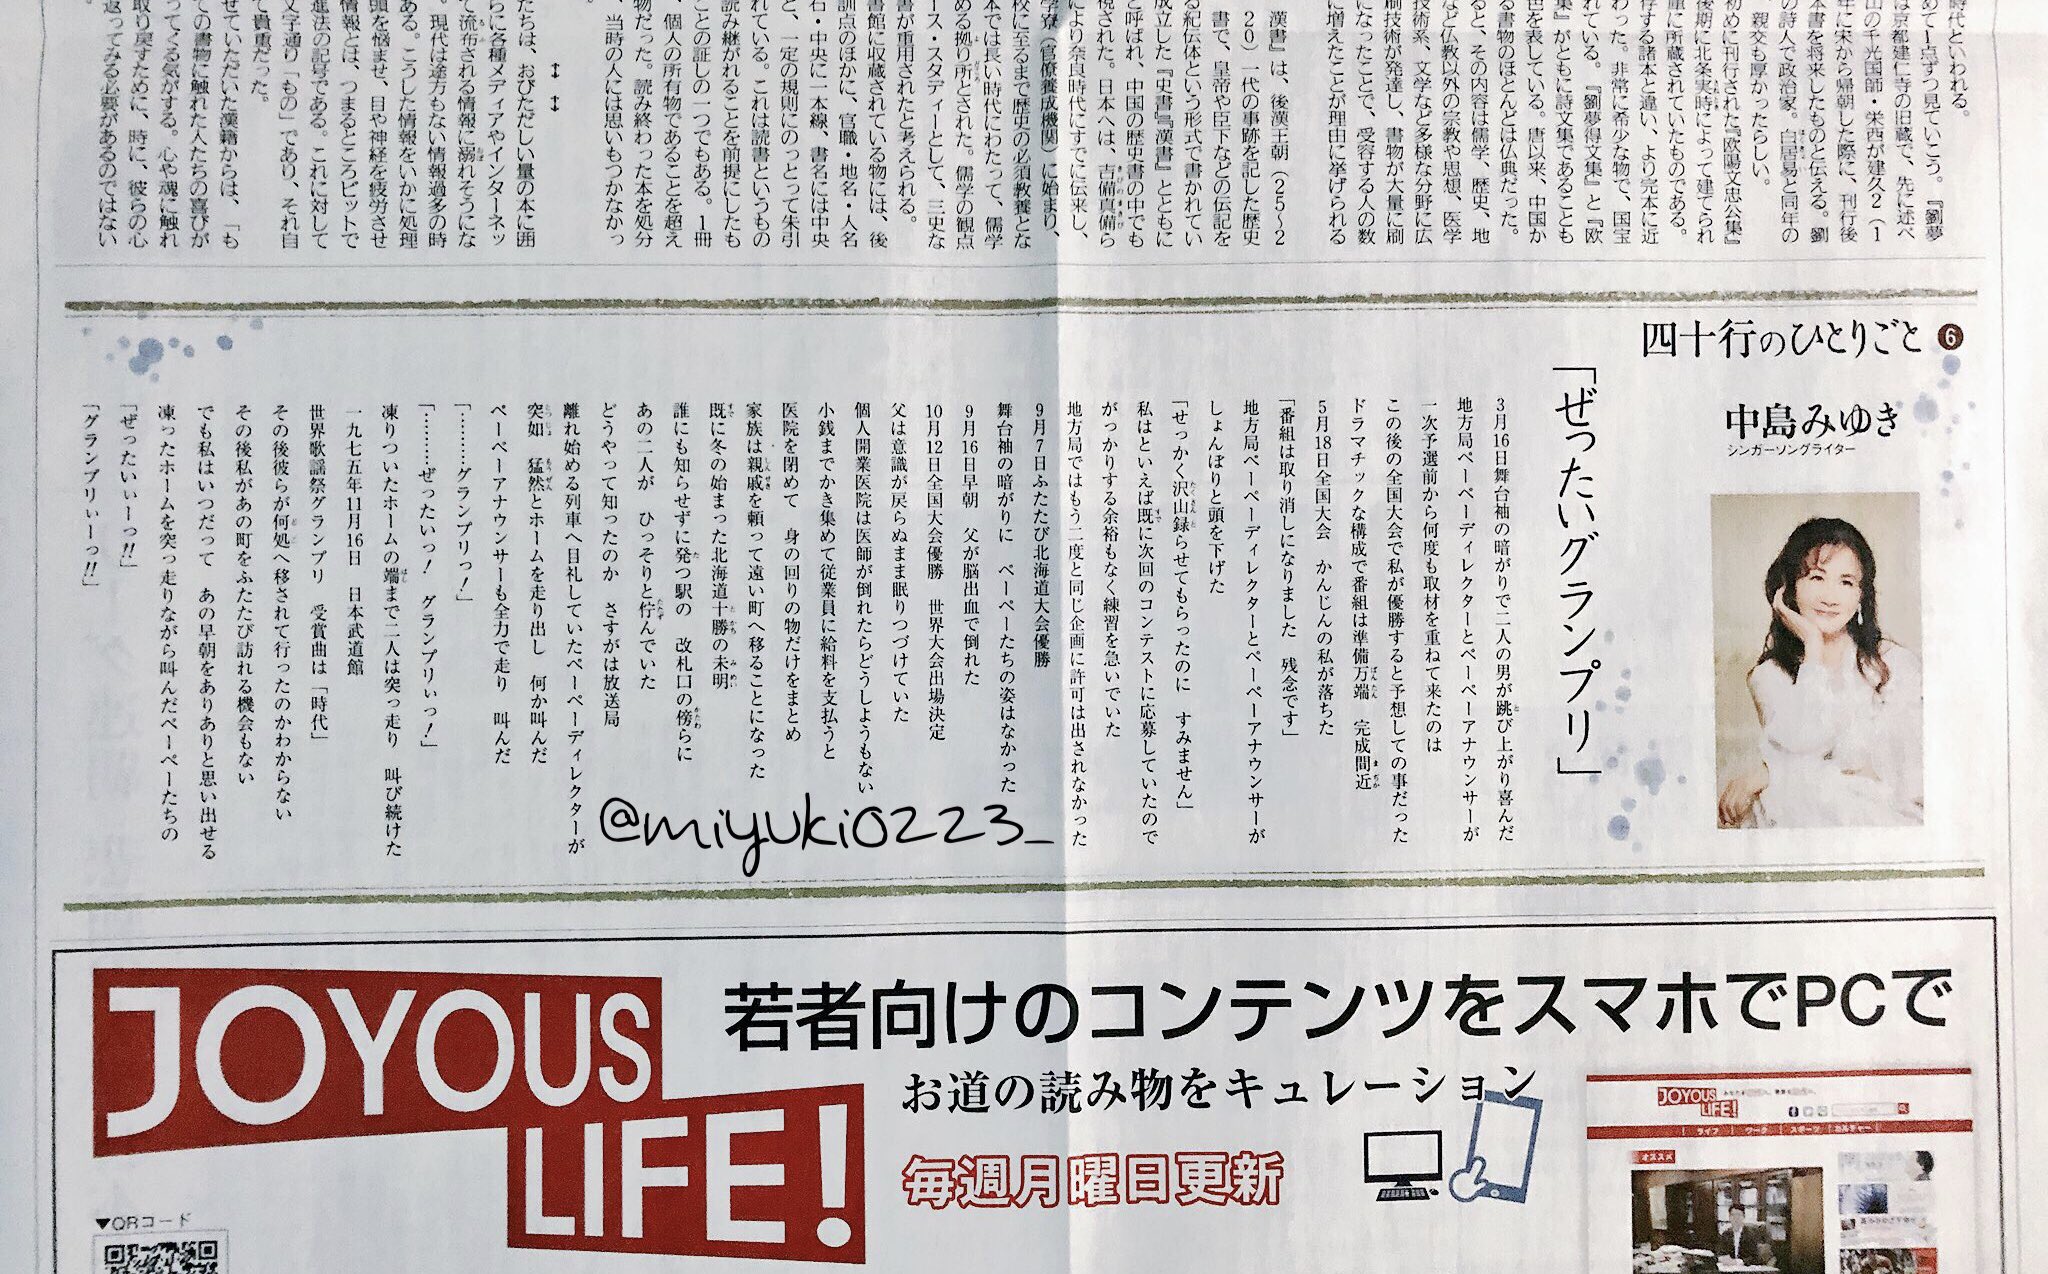 時代といわれる。
めて1点ずつ見ていこう。『劉夢
は京都建仁寺の旧蔵で、先に述べ
山の千光国師・栄西が建久2（1
年に宋から帰朝した際に、刊行後
本書を将来したものと伝える。劉
の詩人で政治家。白居易と同年の
親交も厚かったらしい。
初めに刊行された『欧陽文忠公集』
後期に北条実時によって建てられ
庫に所蔵されていたものである。
存する諸本と違い、より完本に近
わった。非常に希少な物で、国宝
れている。『劉夢得文集』と『欧
集』がともに詩文集であることも
色を表している。唐以来、中国か
る書物のほとんどは仏典だった。
ると、その内容は儒学、歴史、地
など仏教以外の宗教や思想、医学
技術系、文学など多様な分野に広
刷技術が発達し、書物が大量に刷
になったことで、受容する人の数
に増えたことが理由に挙げられる
漢書』は、後漢王朝（25～2
20）一代の事跡を記した歴史
書で、皇帝や臣下などの伝記を
る紀伝体という形式で書かれてい
成立した『史書』『漢書』とともに
と呼ばれ、中国の歴史書の中でも
視された。日本へは、吉備真備ら
により奈良時代にすでに伝来し、
学寮（官僚養成機関）に始まり、
校に至るまで歴史の必須教養とな
本では長い時代にわたって、儒学
める拠り所とされた。儒学の観点
ース・スタディーとして、三史な
書が重用されたと考えられる。
書館に収蔵されている物には、後
訓点のほかに、官職・地名・人名
右・中央に一本線、書名には中央
ど、一定の規則にのっとって朱引
れている。これは読書というもの
読み継がれることを前提にしたも
ことの証しの一つでもある。1冊
、個人の所有物であることを超え
物だった。読み終わった本を処分
、当時の人には思いもつかなかっ
↕ ↕
たちは、おびただしい量の本に囲
らに各種メディアやインターネッ
て流布される情報に溺れそうにな
。現代は途方もない情報過多の時
ある。こうした情報をいかに処理
頭を悩ませ、目や神経を疲労させ
情報とは、つまるところビットで
進法の記号である。これに対して
文字通り「もの」であり、それ自
て貴重だった。
せていただいた漢籍からは、「も
ての書物に触れた人たちの喜びが
ってくる気がする。心や魂に触れ
取り戻すために、時に、彼らの心
返ってみる必要があるのではない
四十行のひとりごと 6
中島みゆき
シンガーソングライター
「ぜったいグランプリ」
3月16日舞台袖の暗がりで二人の男が跳び上がり喜んだ
地方局ペーペーディレクターとペーペーアナウンサーが
一次予選前から何度も取材を重ねて来たのは
この後の全国大会で私が優勝すると予想しての事だった
ドラマチックな構成で番組は準備万端 完成間近
5月18日全国大会 かんじんの私が落ちた
「番組は取り消しになりました 残念です」
地方局ペーペーディレクターとペーペーアナウンサーが
しょんぼりと頭を下げた
「せっかく沢山録らせてもらったのに すみません」
私はといえば既に次回のコンテストに応募していたので
がっかりする余裕もなく練習を急いでいた
地方局ではもう二度と同じ企画に許可は出されなかった
9月7日ふたたび北海道大会優勝
舞台袖の暗がりに ペーペーたちの姿はなかった
9月16日早朝 父が脳出血で倒れた
10月12日全国大会優勝 世界大会出場決定
父は意識が戻らぬまま眠りつづけていた
個人開業医院は医師が倒れたらどうしようもない
小銭までかき集めて従業員に給料を支払うと
医院を閉めて 身の回りの物だけをまとめ
家族は親戚を頼って遠い町へ移ることになった
既に冬の始まった北海道十勝の未明
誰にも知らせずに発つ駅の 改札口の傍らに
あの二人が ひっそりと佇んでいた
どうやって知ったのか さすがは放送局
離れ始める列車へ目礼していたペーペーディレクターが
突如 猛然とホームを走り出し 何か叫んだ
ペーペーアナウンサーも全力で走り 叫んだ
「………グランプリっ！」
「………ぜったいっ！ グランプリぃっ！」
凍りついたホームの端まで二人は突っ走り 叫び続けた
一九七五年11月16日 日本武道館
世界歌謡祭グランプリ 受賞曲は「時代」
その後彼らが何処へ移されて行ったのかわからない
その後私があの町をふたたび訪れる機会もない
でも私はいつだって あの早朝をありありと思い出せる
凍ったホームを突っ走りながら叫んだペーペーたちの
「ぜったいぃーっ!!」
「グランプリぃーっ!!」
@miyuki0223_
JOYOUS
LIFE!
若者向けのコンテンツをスマホでPCで
お道の読み物をキュレーション
毎週月曜日更新
▼QRコード
JOYOUS
LIFE!
ライフ
ワーク
スポーツ
カルチャー
オススメ